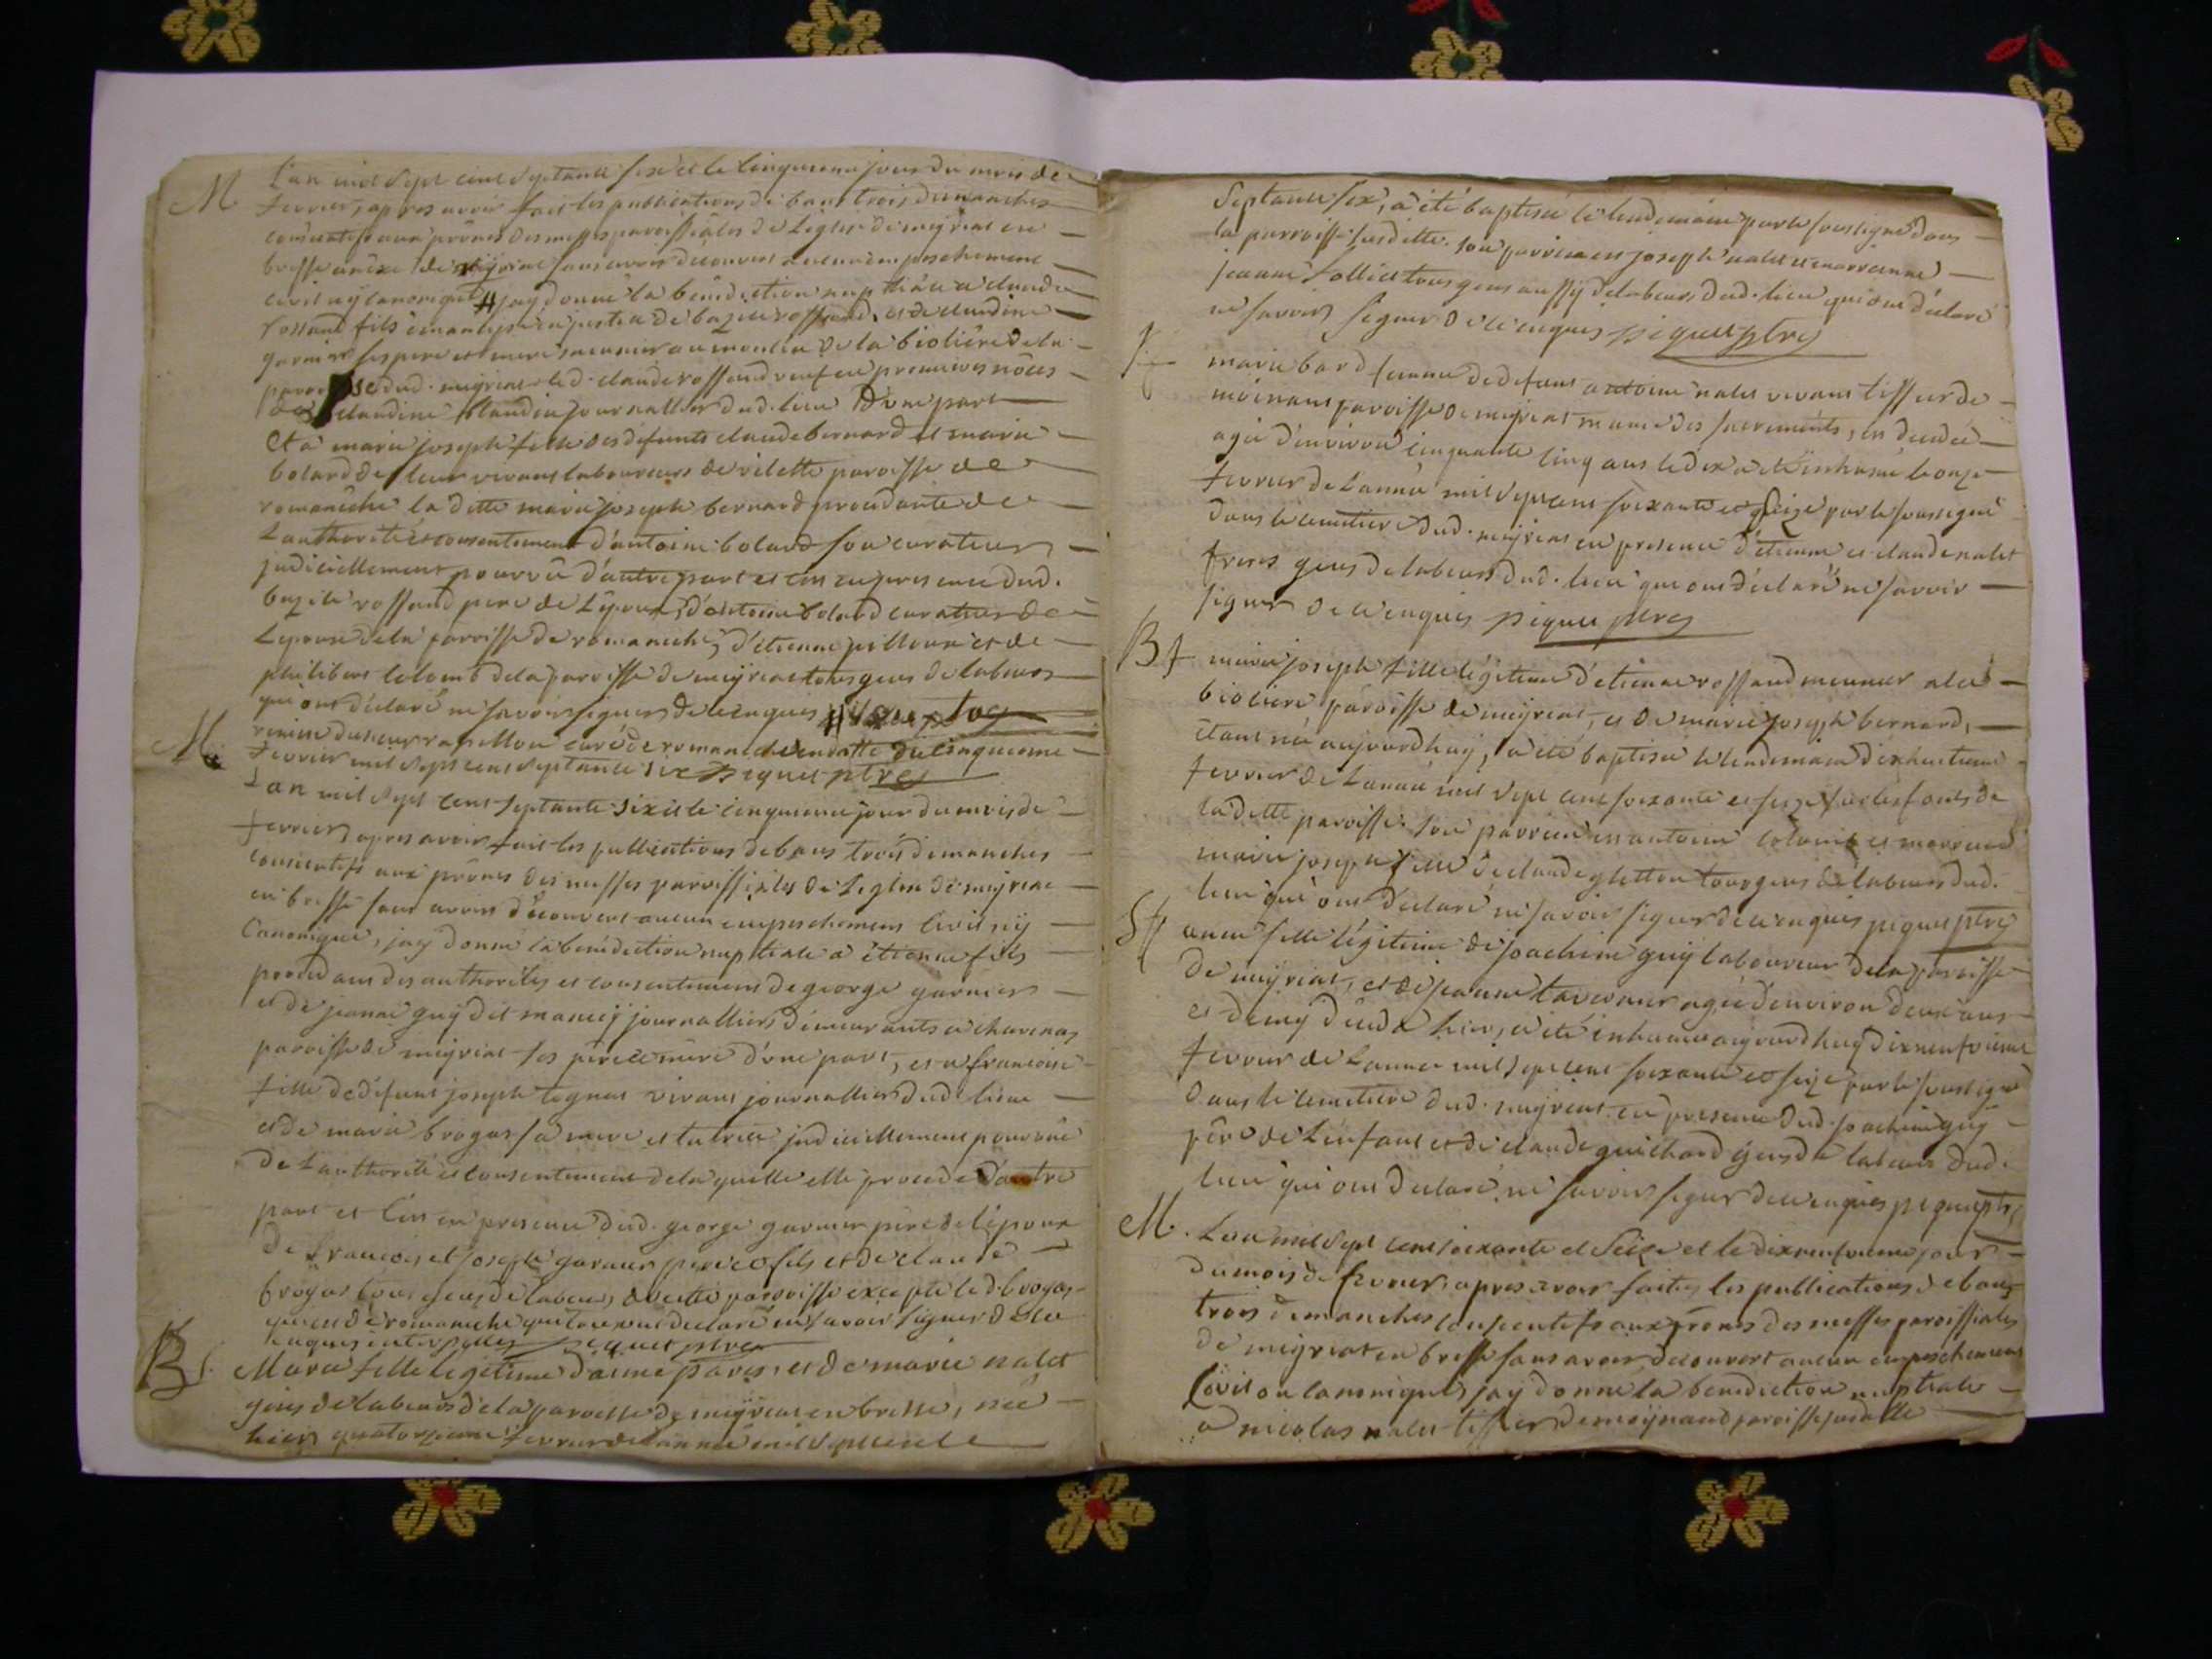 M L'an mil sept cent septante six et le cinquieme jour du mois de
fevrier, apres avoir fait les publications de bans trois dimanches
consecutifs aux prônes des messes paroissiales de l'eglise de meyriat en
bresse anexe de sans avoir decouvert aucun empeschement
civil ny canonique # jay donné la bénédiction nuptiale a claude
rossand fils émancipé en justice de bazile rossand, et de claudine
garnier ses pere et mere meunier au moulin de la bioliere de la
paroisse dud. meyriat led. claude rossand veuf en premieres nôces
de claudine blandin journallier dud. lieu d'une part
Et a marie joseph fille des defunts claude bernard et marie
bolard de leur vivant laboureurs de vilette paroisse de
romaneche la ditte marie joseph bernard procedante de
l'authorité et consentement d'antoine bolard son curateur
judiciellement pourvu d'autre part et ces en presence dud.
bazile rossand pere de l'epoux, d'antoine bolard curateur de
l'epouse de la paroisse de romaneche, d'etienne pilloux et de
philibert colomb de la paroisse de meyriat tous gens de labeurs
qui ont déclaré ne savoir signer de ce enquis #
remise du sieur curé de romaneche en datte du cinquieme
fevrier mil sept cent septante six piquet ptre
M L'an mil sept cent septante six et le cinquieme jour du mois de
fevrier, apres avoir fait les publications de bans trois dimanches
consecutifs aux prônes des messes paroissiales de l'eglise de meyriat
en bresse sans avoir découvert aucun empeschement civil ny
Canonique, jay donné la benédiction nuptiale a étienne fils
procedant des authorités et consentement de george garnier
et de jeanne guy dit maney journalliers démeurants a chavenas
paroisse de meyriat ses pere et mere d'une part, et a francoise
fille de défunt joseph tognat vivant journallier dud. lieu
et de marie brogas sa mere et tutrice judiciellement pourvûe
de l'authorité et consentement de la quelle elle procede d'autre
part et ces en presence dud. george garnier père de l'epoux
de francois et joseph garnier pere et fils et de claude
brogas tous gens de labeur, de cette paroisse excepté led. brogas
qui est de romaneche qui tous ont declaré ne savoir signer de ce
enquis piquet ptre
B Marie fille legitime d'aimé paris, et de marie nalet
gens de labeurs de la paroisse de meyriat en bresse, née
hier, quatorzieme fevrier de l'année mil sept cent
Septante six, a été baptisée le lendemain par le soussigné dans
la parroisse susditte. son parrain est joseph nalet et marrainne
jeanne tous gens aussy de labeurs dud. lieu qui ont déclaré
ne savoir signer de ce enquis piquet ptre
marie bard femme de defunt antoine nalet vivant tissier de
moinant paroisse de meyriat munie des sacrements, est decedée
agée d'environ cinquante cinq ans le dix a été inhumée le onze
fevrier de l'année mil sept cent soixante et seize par le soussigné
dans le cemetiere dud. meyriat en presence d'etienne et claude nalet
freres gens de labeurs dud. lieu qui ont déclaré ne savoir
signer de ce enquis piquet ptre
B marie joseph fille légitime d'etienne rossand meunier a la
bioliere paroisse de meyriat, et de marie joseph bernard,
étant née aujourdhuy, a été baptisée le lendemain dixhuitieme
fevrier de l'année mil sept cent soixante et seize sur les fonts de
la ditte paroisse. son parrain est antoine et marraine
marie joseph fille de claude tous gens de labeurs dud.
lieu qui ont declaré ne savoir signer de ce enquis piquet ptre
S anne fille légitime de joachim guy laboureur de la paroisse
de meyriat, et de jeanne tavernier agée d'environ deux ans
et demy décedé hier, a été inhumée aujourdhuy dixneufvieme
fevrier de l'année mil sept cent soixante et seize par le soussigné
dans le cemetiere dud. meyriat en presence dud. joachim guy
père de l'enfant et de claude guichard gens de labeurs dud.
lieu qui ont declaré ne savoir signer de ce enquis piquet ptre
M. L'an mil sept cent soixante et seize et le dixneufvieme jour
du mois de fevrier, apres avoir faites les publications de bans
trois dimanches consecutifs aux prones des messes paroissiales
de meyriat en bresse sans avoir decouvert aucun empeschement
Civil ou canonique, jay donné la benediction nuptiale
a nicolas nalet tissier de moynand paroisse susditte